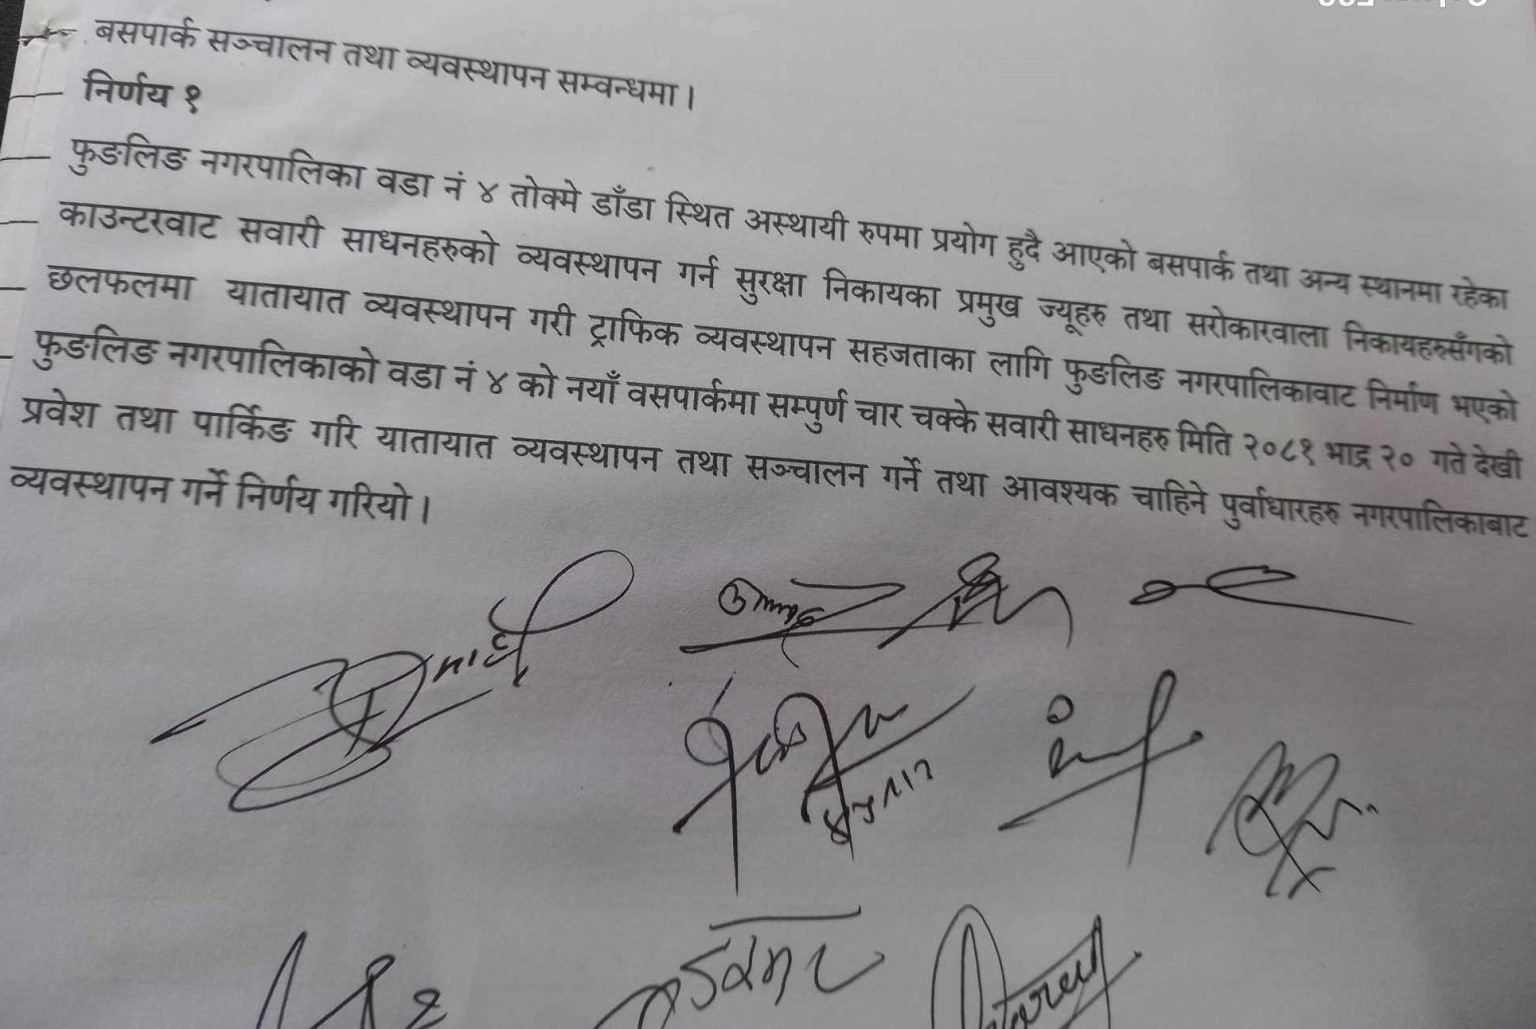 बसपार्क सञ्चालन तथा व्यवस्थापन सम्वन्धमा ।
निर्णय १
फुङलिङ नगरपालिका वडा नं ४ तोक्मे डाँडा स्थित अस्थायी रुपमा प्रयोग हुदै आएको बसपार्क तथा अन्य स्थानमा रहेका
काउन्टरवाट सवारी साधनहरुको व्यवस्थापन गर्न सुरक्षा निकायका प्रमुख ज्यूहरु तथा सरोकारवाला निकायहरुसँगको
छलफलमा यातायात व्यवस्थापन गरी ट्राफिक व्यवस्थापन सहजताका लागि फुङलिङ नगरपालिकावाट निर्माण भएको
फुङलिङ नगरपालिकाको वडा नं ४ को नयाँ वसपार्कमा सम्पुर्ण चार चक्के सवारी साधनहरु मिति २०८१ भाद्र २० गते देखी
प्रवेश तथा पार्किङ गरि यातायात व्यवस्थापन तथा सञ्चालन गर्ने तथा आवश्यक चाहिने पुर्वाधारहरु नगरपालिकाबाट
व्यवस्थापन गर्ने निर्णय गरियो ।